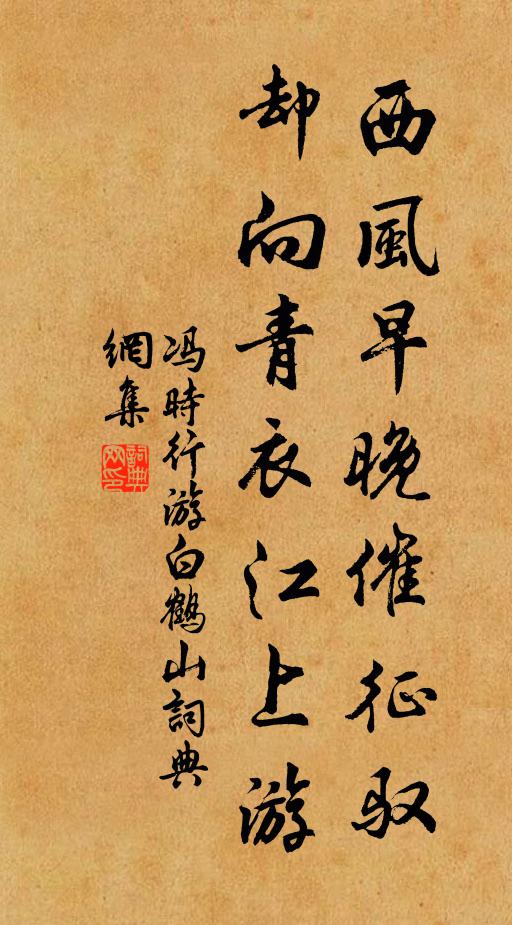 西風早晚催征驭
却向青衣江上游
冯時行游白鶴山詞典
網集
詞典網印